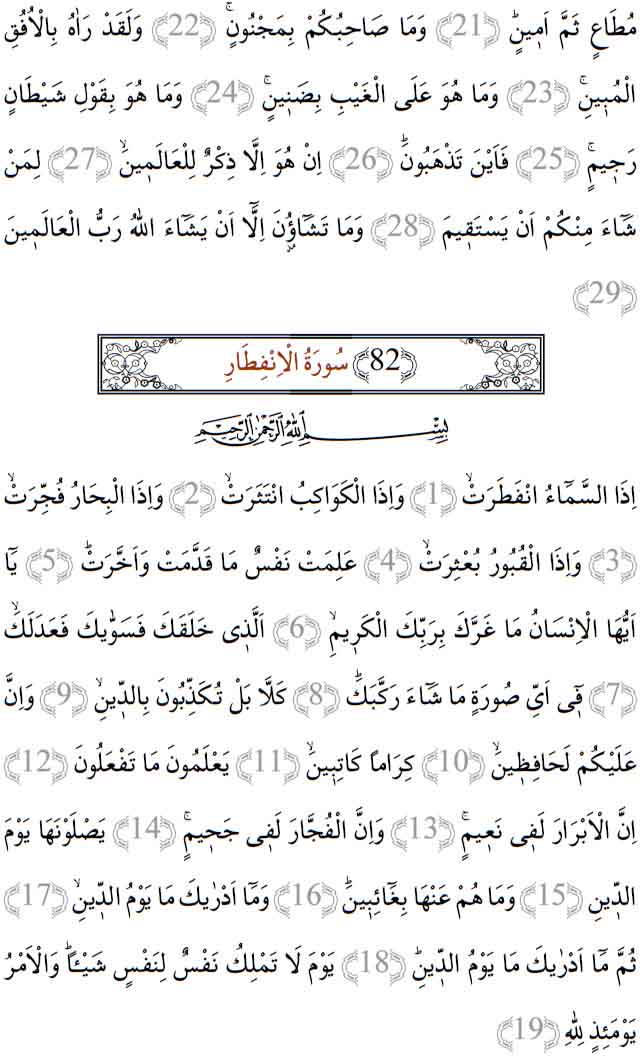 مُطَاعٍ ثَمَّ اَم۪ينٍۜ (21) وَمَا صَاحِبُكُمْ بِمَجْنُونٍۚ (22) وَلَقَدْ رَاٰهُ بِالْاُفُقِ
الْمُب۪ينِۚ (23) وَمَا هُوَ عَلَى الْغَيْبِ بِضَن۪ينٍۚ (24) وَمَا هُوَ بِقَوْلِ شَيْطَانٍ
رَج۪يمٍۚ (25) فَاَيْنَ تَذْهَبُونَۜ (26) اِنْ هُوَ اِلَّا ذِكْرٌ لِلْعَالَم۪ينَۙ (27) لِمَنْ
شَٓاءَ مِنْكُمْ اَنْ يَسْتَق۪يمَ (28) وَمَا تَشَٓاؤُ۫نَ اِلَّٓا اَنْ يَشَٓاءَ اللّٰهُ رَبُّ الْعَالَم۪ينَ
(29)
(82) سُورَةُ الْاِنْفِطَارِ
بِسْمِ اللّٰهِ الرَّحْمٰنِ الرَّحِيمِ
اِذَا السَّمَٓاءُ انْفَطَرَتْۙ (1) وَاِذَا الْكَوَاكِبُ انْتَثَرَتْۙ (2) وَاِذَا الْبِحَارُ فُجِّرَتْۙ
(3) وَاِذَا الْقُبُورُ بُعْثِرَتْۙ (4) عَلِمَتْ نَفْسٌ مَا قَدَّمَتْ وَاَخَّرَتْۜ (5) يَٓا
اَيُّهَا الْاِنْسَانُ مَا غَرَّكَ بِرَبِّكَ الْكَر۪يمِۙ (6) اَلَّذ۪ي خَلَقَكَ فَسَوّٰيكَ فَعَدَلَكَۙ
(7) ف۪ٓي اَيِّ صُورَةٍ مَا شَٓاءَ رَكَّبَكَۜ (8) كَلَّا بَلْ تُكَذِّبُونَ بِالدّ۪ينِۙ (9) وَاِنَّ
عَلَيْكُمْ لَحَافِظ۪ينَۙ (10) كِرَاماً كَاتِب۪ينَۙ (11) يَعْلَمُونَ مَا تَفْعَلُونَ (12)
اِنَّ الْاَبْرَارَ لَف۪ي نَع۪يمٍۚ (13) وَاِنَّ الْفُجَّارَ لَف۪ي جَح۪يمٍۚ (14) يَصْلَوْنَهَا يَوْمَ
الدّ۪ينِ (15) وَمَا هُمْ عَنْهَا بِغَٓائِب۪ينَۜ (16) وَمَٓا اَدْرٰيكَ مَا يَوْمُ الدّ۪ينِۙ (17)
ثُمَّ مَٓا اَدْرٰيكَ مَا يَوْمُ الدّ۪ينِۜ (18) يَوْمَ لَا تَمْلِكُ نَفْسٌ لِنَفْسٍ شَيْـٔاًۜ وَالْاَمْرُ
يَوْمَئِذٍ لِلّٰهِ (19)